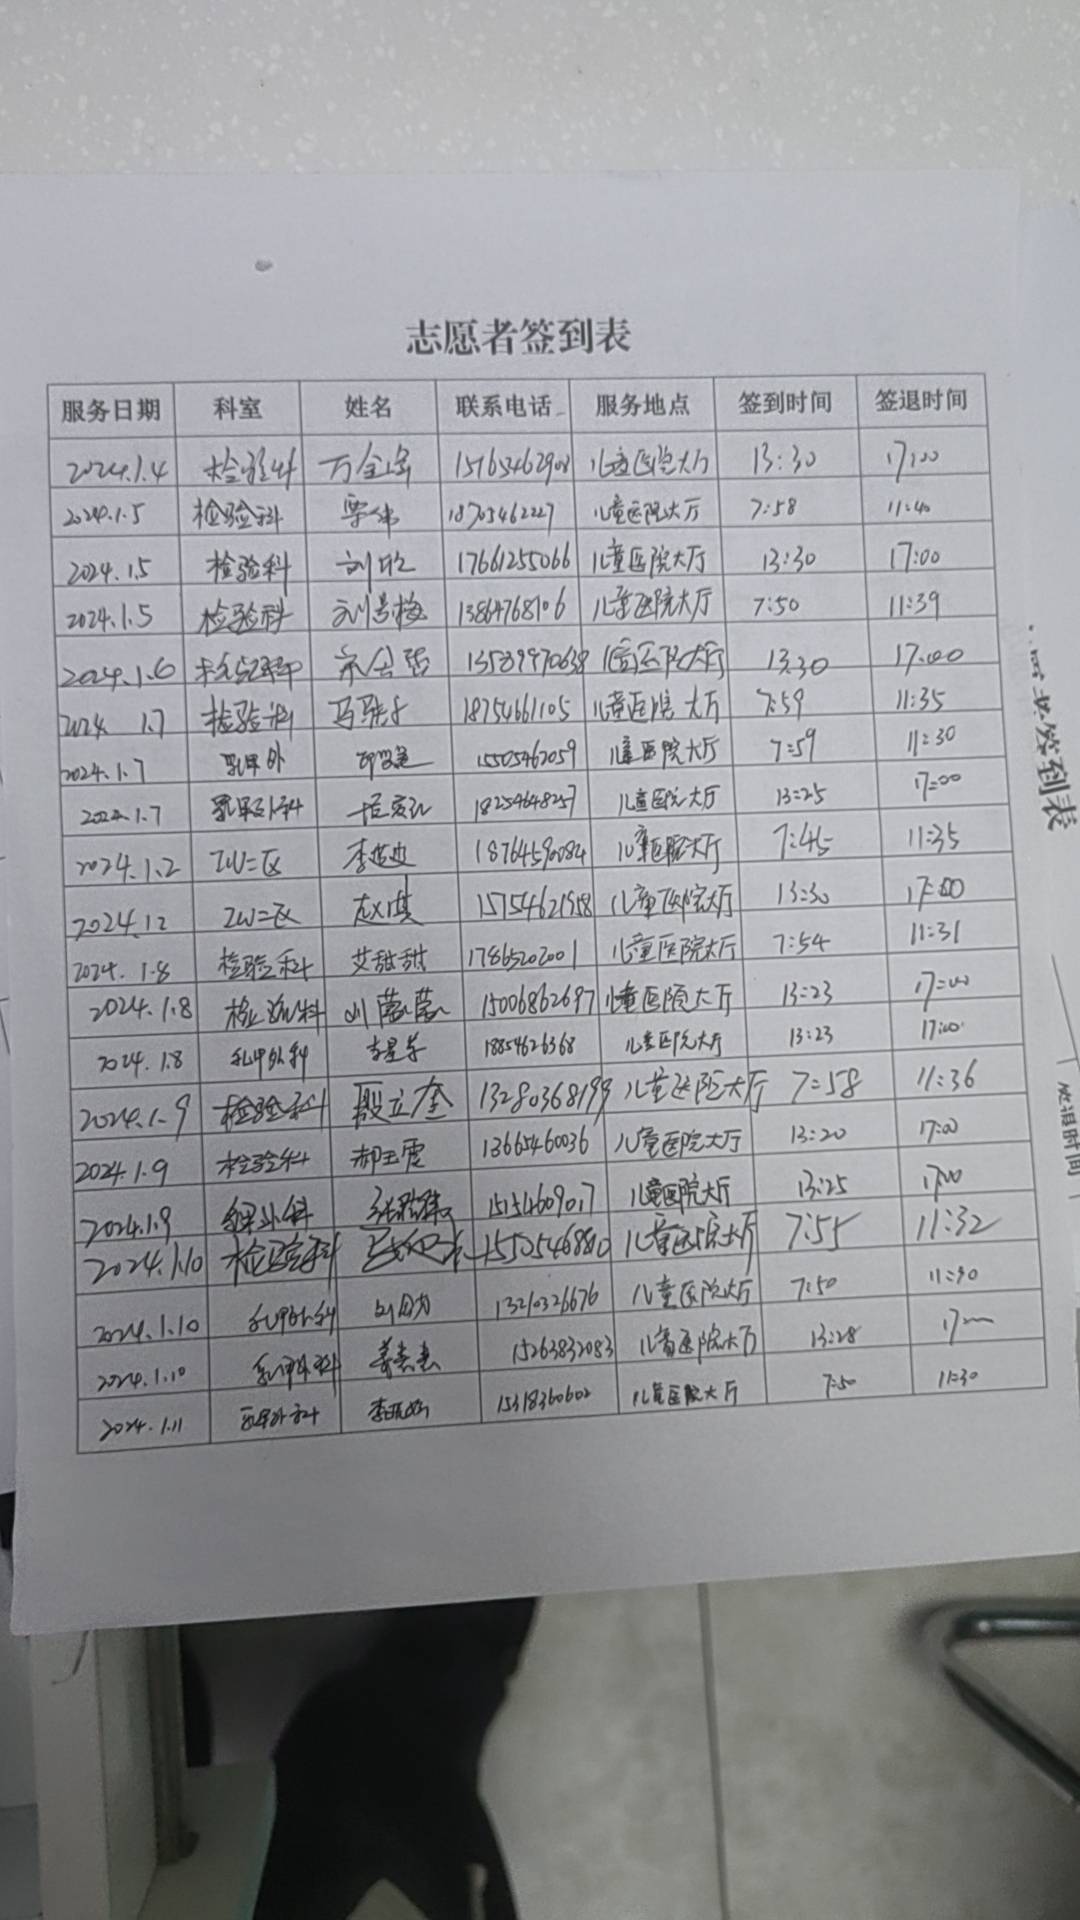 志愿者签到表
服务日期 科室 姓名 联系电话 服务地点 签到时间 签退时间
2024.1.4 检验科 万金 儿童医院大厅 13:30 17:00
2024.1.5 检验科 18705462227 儿童医院大厅 7:58 11:40
2024.1.5 检验科 刘 17661255066 儿童医院大厅 13:30 17:00
2024.1.5 检验科 刘 梅 13864768106 儿童医院大厅 7:50 11:39
2024.1.6 13589970638 儿童医院大厅 13:30 17:00
2024.1.7 检验科 马 18754661105 儿童医院大厅 7:59 11:35
2024.1.7 乳甲外 15505462059 儿童医院大厅 7:59 11:30
2024.1.7 乳甲外科 18254648257 儿童医院大厅 13:25 17:00
2024.1.2 ICU二区 李 18764590084 儿童医院大厅 7:45 11:35
2024.1.2 ICU二区 赵琪 15754621958 儿童医院大厅 13:30 17:00
2024.1.8 检验科 艾甜甜 17865202001 儿童医院大厅 7:54 11:31
2024.1.8 检验科 刘蒙蒙 15006862697 儿童医院大厅 13:23 17:00
2024.1.8 乳甲外科 18854626368 儿童医院大厅 13:23 17:00
2024.1.9 检验科 殷立奎 13280368199 儿童医院大厅 7:58 11:36
2024.1.9 检验科 郝玉霞 13665460036 儿童医院大厅 13:20 17:00
2024.1.9 15154609017 儿童医院大厅 13:25 17:00
2024.1.10 检验科 儿童医院大厅 7:55 11:32
2024.1.10 乳甲外科 13210326676 儿童医院大厅 7:50 11:30
2024.1.10 乳甲外科 15263832083 儿童医院大厅 13:28
2024.1.11 乳甲外科 李 15318360602 儿童医院大厅 7:50 11:30
签到表
退时间